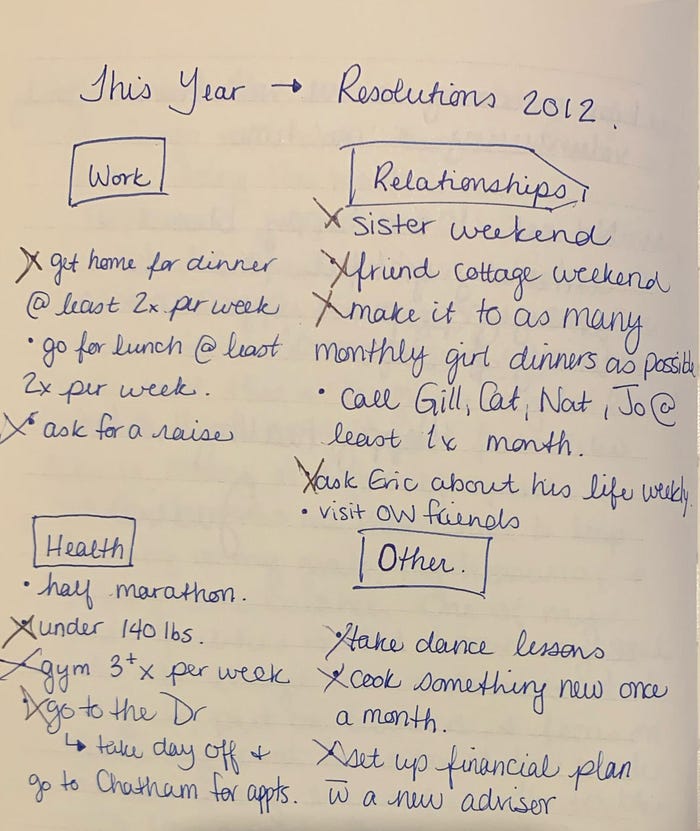 This Year → Resolutions 2012.
Work
x get home for dinner
@ least 2x per week
• go for lunch @ least
2x per week.
x ask for a raise
Relationships
x sister weekend
x friend cottage weekend
x make it to as many
monthly girl dinners as possible
• call Gill, Cat, Nat, Jo @
least 1x month.
x ask Eric about his life weekly.
• visit OW friends
Health
• half marathon.
x under 140 lbs.
x gym 3+x per week
x go to the Dr
↳ take day off +
go to Chatham for appts.
Other.
x take dance lessons
x cook something new once
a month.
x set up financial plan
w̅ a new adviser